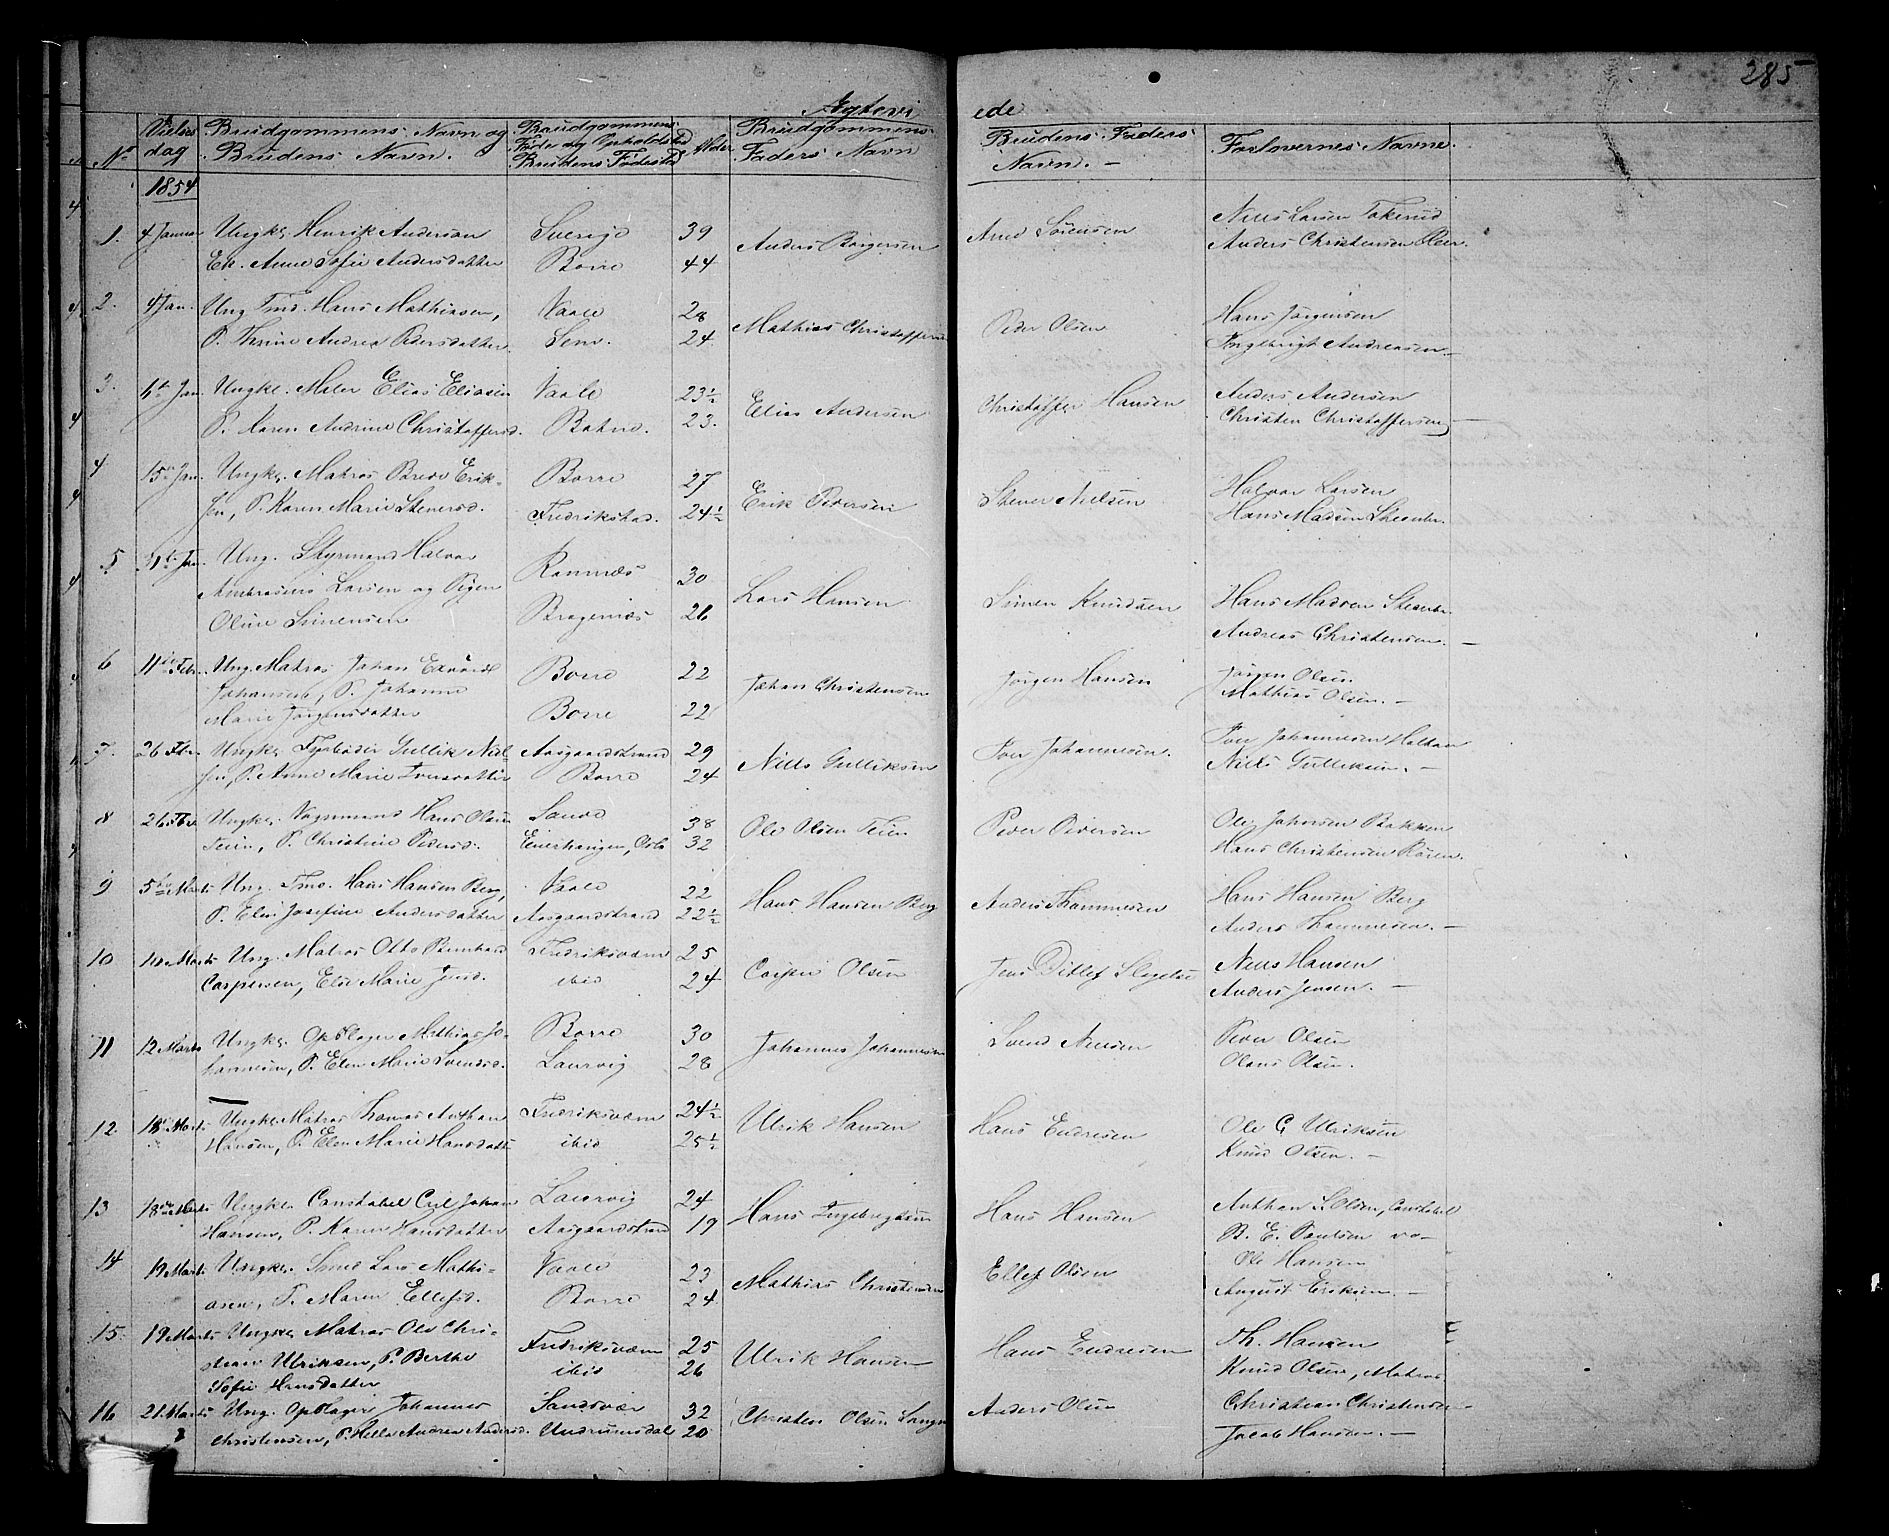 285
Ægtevi
ede
No
Vielses
dag
Brudgommens Navn og
Brudens Navn.
Brudgommens
Føde og Opholdsted
Brudens Fødested
Alder
Brudgommens
Faders Navn
Brudens Faders
Navn. —
Forlovernes Navne.
1854
1. 4 Januar Ungk. Henrik Anderson Sverige 39 Anders Børgersen Arne Sørensen Niels Larsen Takerud
Ek. Anne Sofie Andersdatter Borre 44 Anders Christensen
2. 4 Jan. Ung Tmd. Hans Mathiasen, Vaale 28 Mathias Christoffersen Peder Olsen Hans Jørgensen
P. Thrine Andrea Pedersdatter Sem. 24 Ingebrigt Andreasen —
3. Jan Ungk. Maler Elias Eliasen Vaale 23½ Elias Andersen Christoffer Hansen Anders Andersen
P. Karen Andrine Christoffersd. Botne. 23. Christen Christoffersen —
4 15de Jan. Ungk. Matros Brede Erik- Borre 27 Erik Pedersen Stener Nielsen Halvor Larsen
sen, P. Karen Marie Stenersd. Fredrikstad. 24½ Hans Madsen Steenbr.
5 Jan. Ung. Styrmand Halvor Ramnæs 30 Lars Hansen Simen Knudsen Hans Madsen Steenbr.
Ambrosius Larsen og Pigen
Oline Simensen Bragernæs 26 Andreas Christensen. —
6 11te Febr. Ung. Matros Johan Edvard Borre 22 Johan Christensen Jørgen Hansen Jørgen Olsen
Johansen, P. Johanne Mathias Olsen. —
Marie Jørgensdatter Borre 22
7. 26 Fbr. Ungk. Fyrbøder Gullik Niel- Aasgaardstrand 29 Niels Gulliksen Iver Johannesen. Iver Johannesen
sen, P. Anne Marie Iversdatter Borre 24 Niels Gulliksen. —
8 26 Fbr. Ungk. Vognmand Hans Olsen Sande 38 Ole Olsen Teien Peder Pedersen Ole Johnsen Bakken
Teien, P. Christine Pedersd. 32 Hans Christensen
9 5te Marts Ung. Tmd. Hans Hansen Berg, Vaale 22 Hans Hansen Berg Anders Thommesen Hans Hansen Berg
P. Elen Josefine Andersdatter Aasgaardstrand 22½ Anders Thommesen. —
10 10 Marts Ung. Matros Otto Bernhard Fredriksværn 25 Casper Olsen Jens Ditlef Slagelse Niels Hansen
Caspersen, Else Marie Jensd. ibid 24 Anders Jensen. —
11 12 Marts Ungk. Opslager Mathias Jo- Borre 30 Johannes Johannesen Svend Nielsen Peder Olsen
hannesen, P. Elen Marie Svendsd. Laurvig 28 Olaus Olsen.
12. 18de Marts Ungk. Matros Thomas Anthon Fredriksværn 24½ Ulrik Hansen Hans Endresen Ole G Ulriksen
Hansen, P. Elen Marie Hansdatt. ibid 25½ Knud Olsen. —
13 18de Marts Ungk. Constabel Carl Johan Laurvig 24 Hans Ingebregtsen Hans Hansen Anthon S. Olsen, Constabel
Hansen, P. Karen Hansdatter Aasgaardstrand 19 B. E. Poulsen do —
14 19 Marts Ungk. Smed Lars Mathi- Vaale 23 Mathias Christensen Ellef Olsen Ole Hansen
asen, P. Maren Ellefsd. Borre 24 August Eriksen. —
15. 19 Marts Ungk. Matros Ole Chri- Fredriksværn 25 Ulrik Hansen Hans Endresen Th. Hansen
stian Ulriksen, P. Berthe ibid 26 Knud Olsen, Matros
Sofie Hansdatter
16 21. Marts Ung. Opslager Johannes Sandsvær 32 Christen Olsen Anders Olsen Christian Christensen —
Christensen, P. Helle Andrea Andersd. 20 Jacob Hansen. —